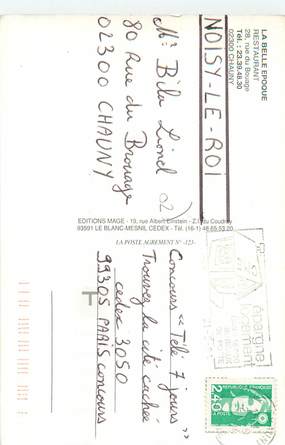 LA BELLE EPOQUE
RESTAURANT
28, rue du Brouage
Tél : 23.39.48.30
02300 CHAUNY
NOISY-LE-ROI
Mr Bilu Lionel
80 Rue du Brouage
02300 CHAUNY
EDITIONS MAGE - 19, rue Albert Einstein - Z.I. du Coudray
93591 LE BLANC-MESNIL CEDEX - Tél. (16-1) 48.65.53.20
LA POSTE AGREMENT N° -323-
Concours << Télé 7 jours >>
Trouvez la cité cachée
cedex 3050
99305 PARIS concours
épargne
REPUBLIQUE FRANÇAISE
2,40